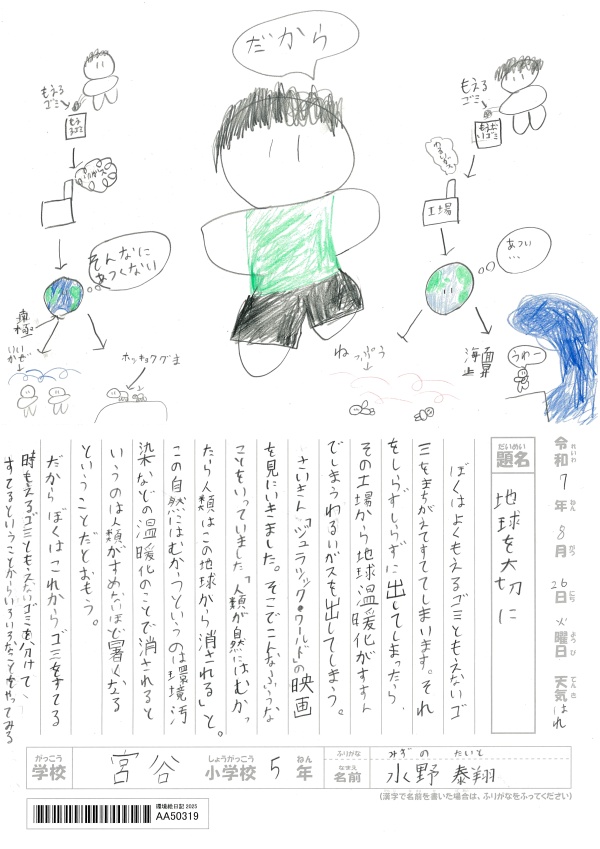 だから
もえる
ゴミ
もえ
るゴミ
いガス
そんなに
あつくない
南極
いい
かぜ
ホッキョクグま
もえる
ゴミ
もえな
いゴミ
わるいガス
工場
あつい
…
ねっぷう
海面
上昇
うわー
令和7年8月26日火曜日 天気はれ
れいわ ねん がつ にち ようび てんき
だいめい
題名 地球を大切に
ぼくはよくもえるゴミともえないゴ
ミをまちがえてすててしまいます。それ
をしらずしらずに出してしまったら、
その工場から地球温暖化がすすん
でしまうわるいガスを出してしまう。
さいきん「ジュラシック・ワールド」の映画
を見にいきました。そこでこんなふうな
ことをいっていました「人類が自然にはむかっ
たら人類はこの地球から消される」と。
この自然にはむかうというのは環境汚
染などの温暖化のことで消されると
いうのは人類がすめないほど暑くなる
ということだとおもう。
だからぼくはこれからゴミをすてる
時もえるゴミともえないゴミを分けて、
すてるということからいろいろなことをやってみる
がっこう しょうがっこう ねん
学校 宮谷 小学校 5年
ふりがな みずの たいと
なまえ
名前 水野 泰翔
(漢字で名前を書いた場合は、ふりがなをふってください)
環境絵日記 2025
AA50319